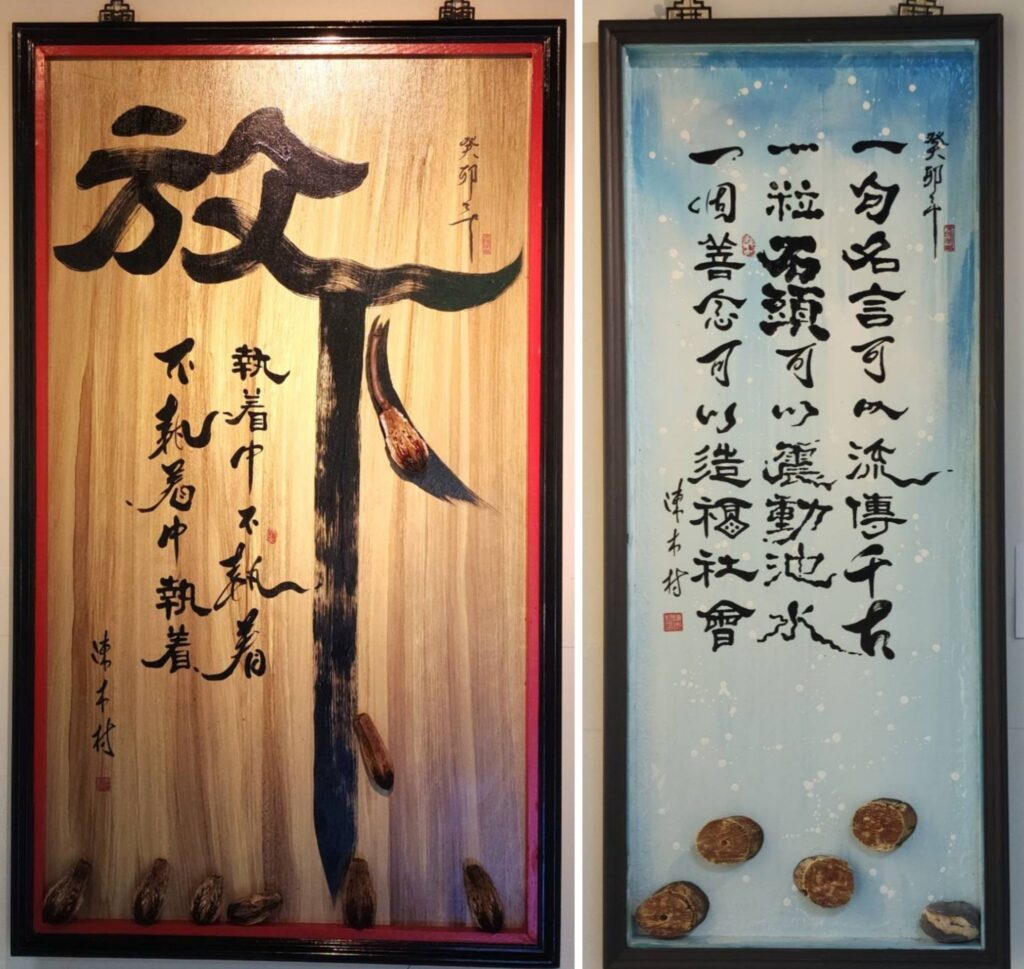 放下
癸卯年
執着中不執着
不執着中執着
陳木村
癸卯年
一句名言可以流傳千古
一粒石頭可以震動池水
一個善念可以造福社會
陳木村